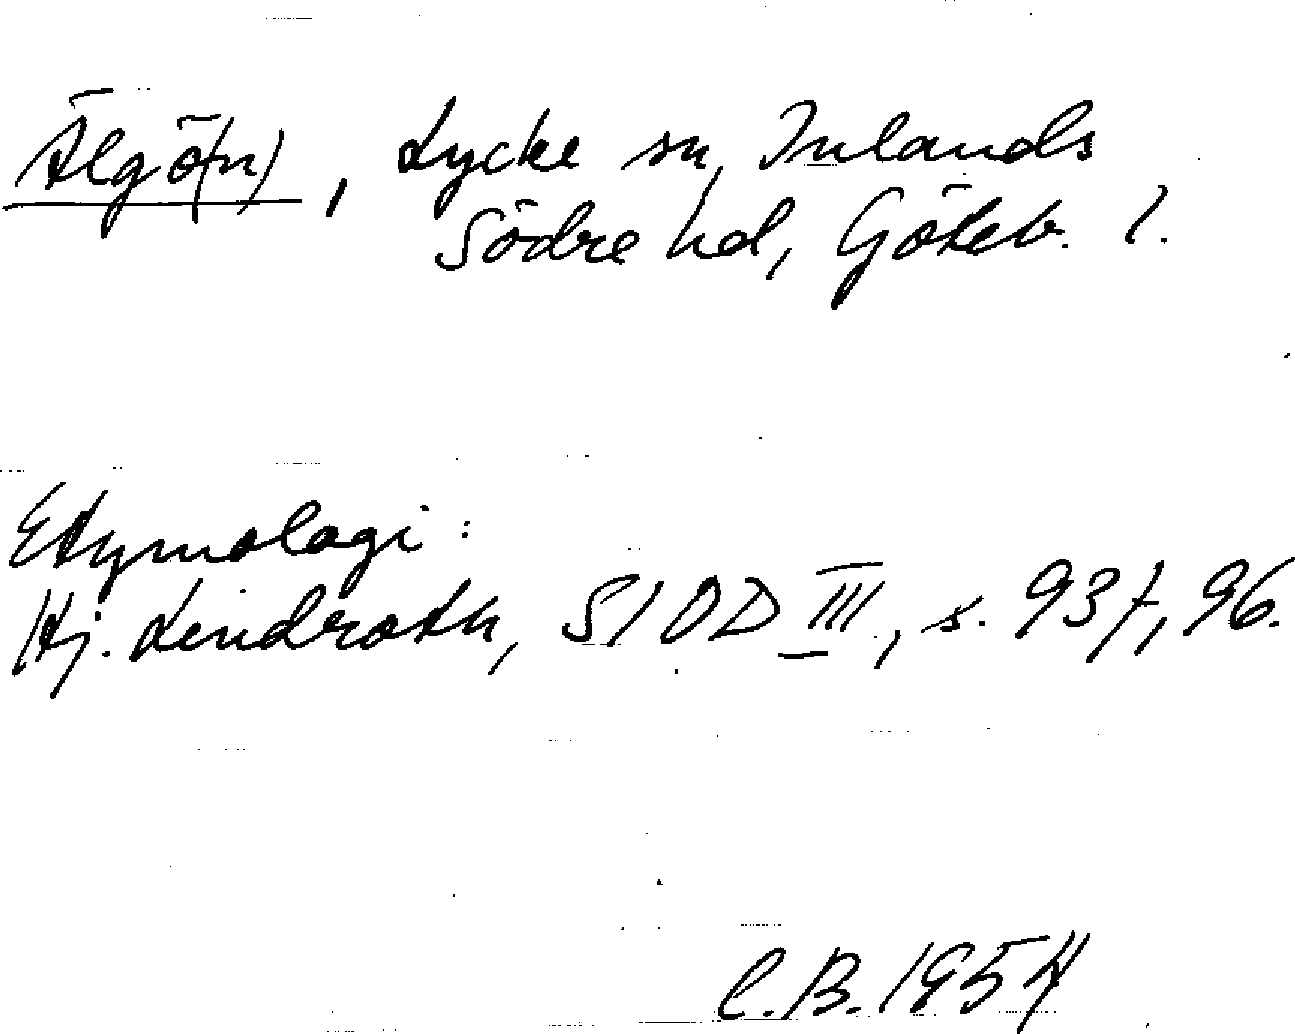 Älgö(n), Lycke sn, Inlands
Södre hd, Göteb. l.
Etymologi:
Hj. Lindroth, SIOD III, s. 93f, 96.
C.B. 1954